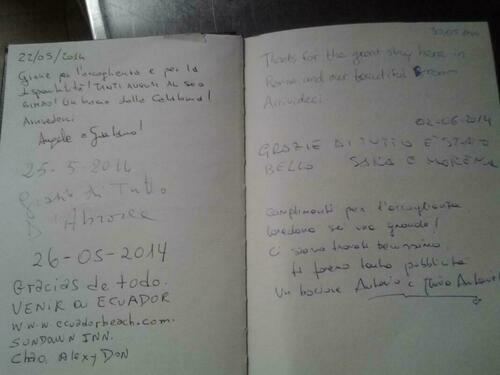 22/05/2014
Grazie per l'accoglienza e per la
disponibilità! TANTI AUGURI AL SUO
Un bacio dalla
Arrivederci
Angelo e
25-5-2014
Grazie di Tutto
D'
26-05-2014
Gracias de todo.
VENIR a ECUADOR
www.ecuadorbeach.com.
SUNDOWN INN.
Chao. Alex y DON
Thanks for the great stay here in
Rome and our beautiful room
Arrivederci
02-06-2014
GRAZIE DI TUTTO E' STATO
BELLO SARA E MORENA
Complimenti per l'accoglienza
sei una grande!
Ci siamo trovati benissimo.
ti faremo tanta pubblicità
Un bacione Antonio e